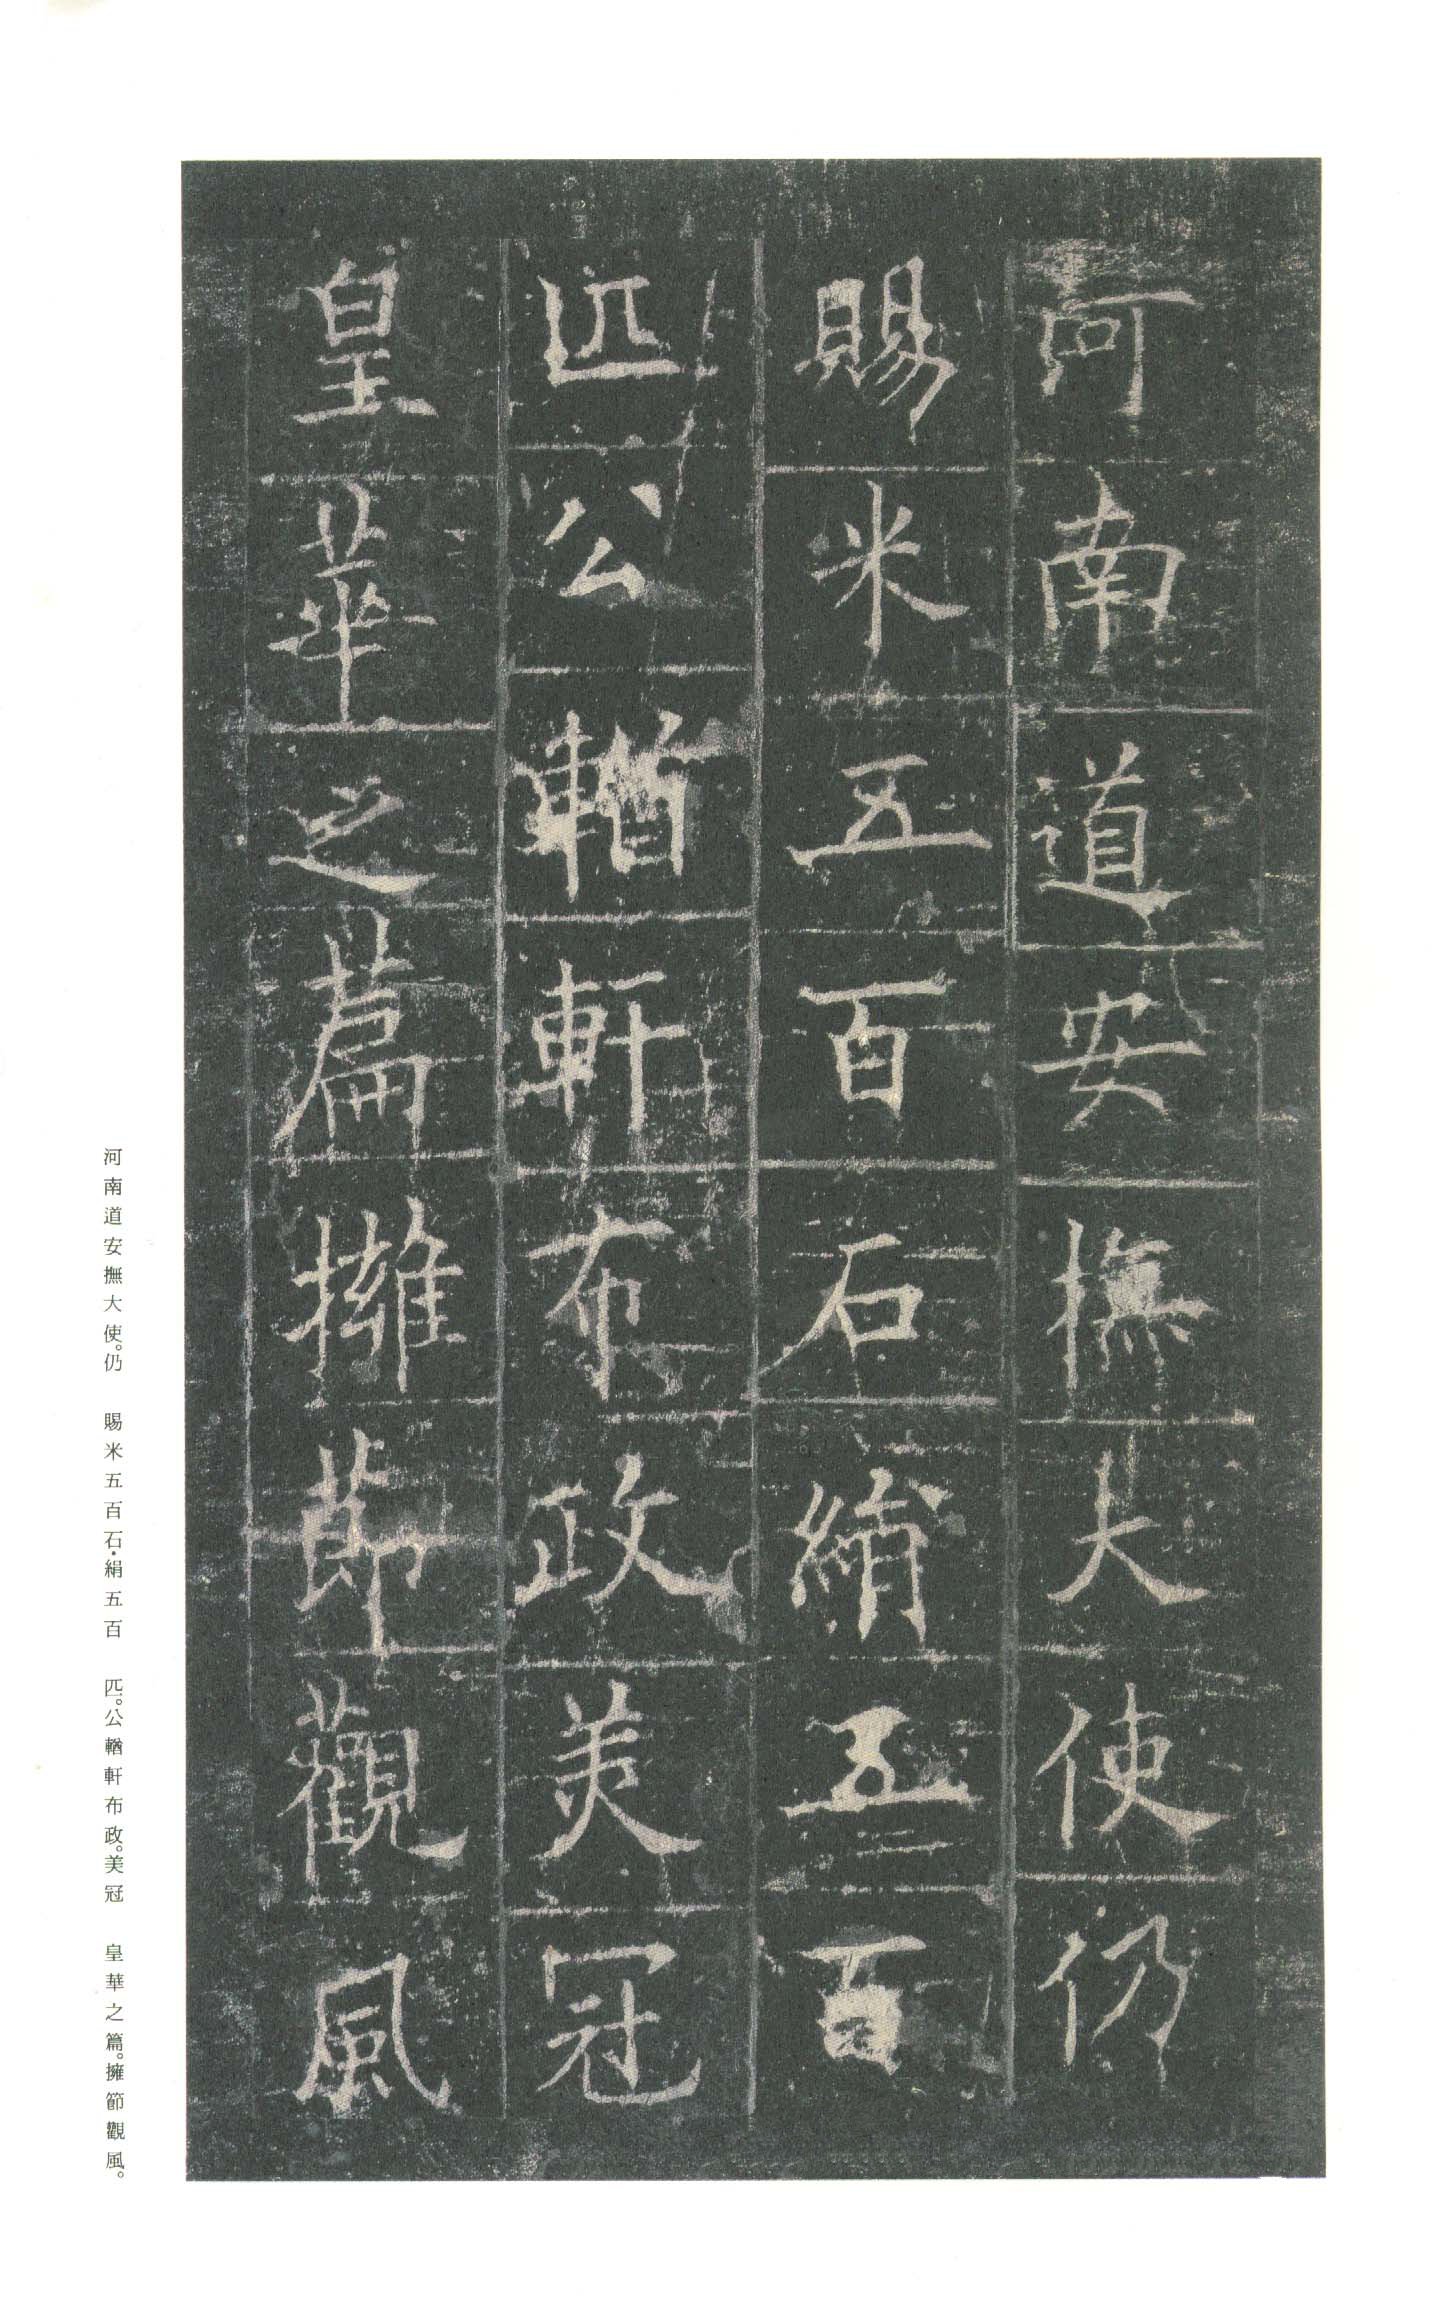 河南道安撫大使仍
賜米五百石絹五百
匹公輶軒布政美冠
皇華之篇擁節觀風
河南道安撫大使。仍　賜米五百石·絹五百　匹。公輶軒布政。美冠　皇華之篇。擁節觀風。